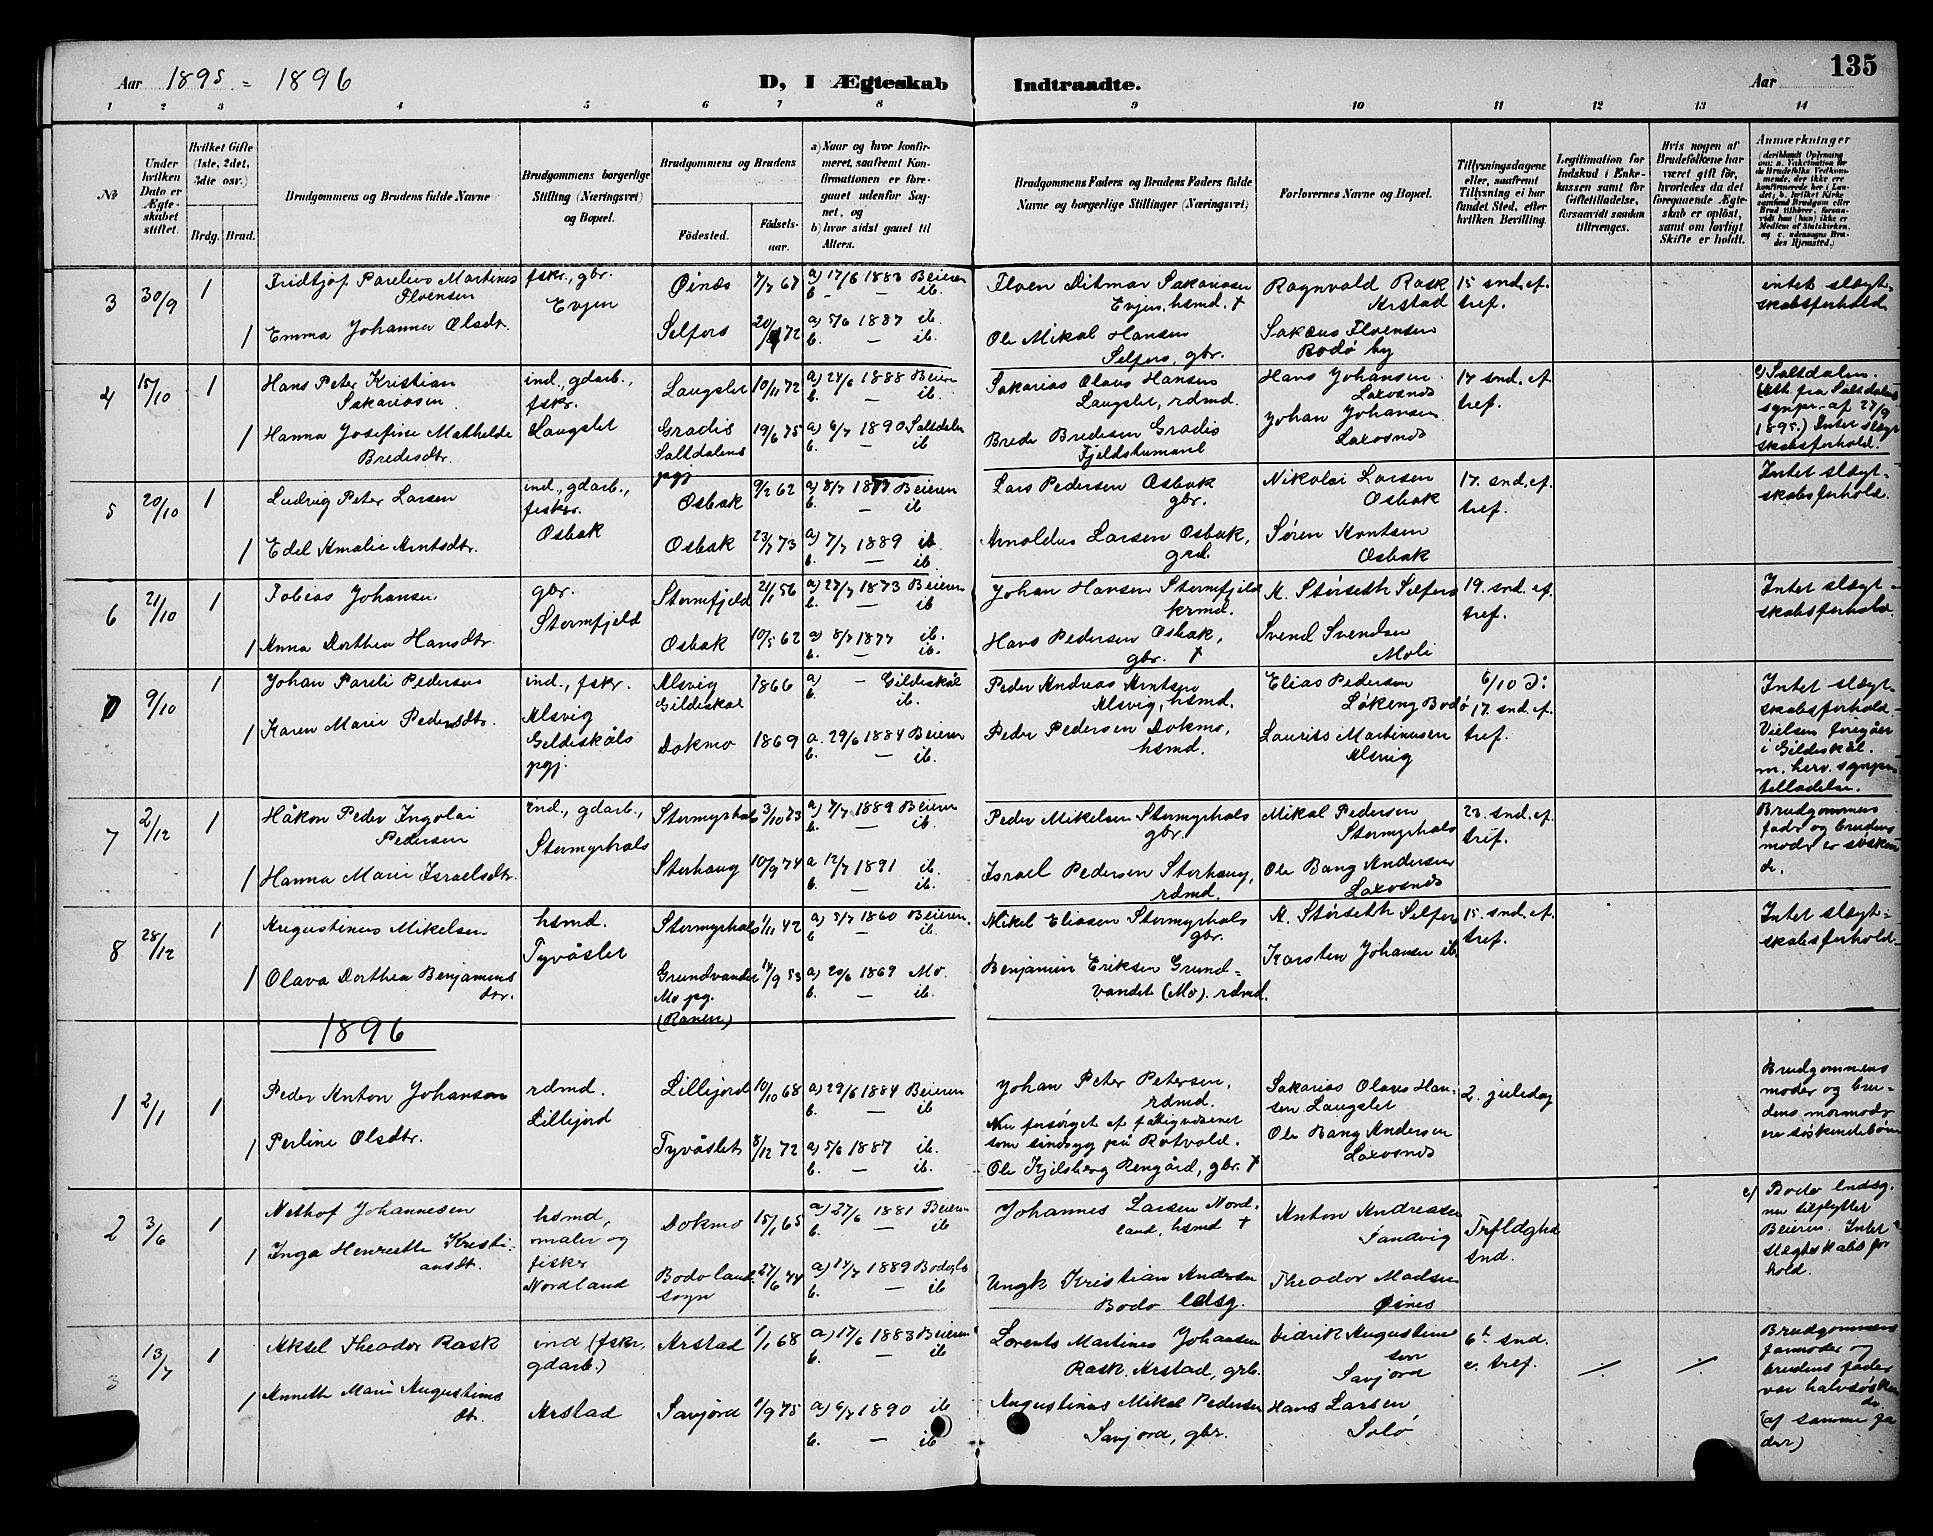 Aar 1895 = 1896
D, I Ægteskab Indtraadte.
Aar
135
1 2 3 4 5 6 7 8 9 10 11 12 13 14
No
Under hvilken Dato er Ægteskabet stiftet.
Hvilket Gifte (1ste, 2det, 3die osv.)
Brdg. Brud.
Brudgommens og Brudens fulde Navne
Brudgommens borgerlige Stilling (Næringsvei) og Bopæl.
Brudgommens og Brudens
Födested. Födsels-aar.
a) Naar og hvor konfirmeret, saafremt Konfirmationen er foregaaet udenfor Sognet, og
b) hvor sidst gaaet til Alters.
Brudgommens Faders og Brudens Faders fulde Navne og borgerlige Stillinger (Næringsvei)
Forlovernes Navne og Bopæl.
Tillysningsdagene eller, saafremt Tillysning ei har fundet Sted, efter hvilken Bevilling.
Legitimation for Indskud i Enkekassen samt for Giftetilladelse, forsaavidt saadan tiltrænges.
Hvis nogen af Brudefolkene har været gift för, hvorledes da det foregaaende Ægteskab er oplöst, samt om lovligt Skifte er holdt.
Anmærkninger
3 30/9 1 Fridtjof Parelius Martines
fskr., gbr.
Evjen
Øines 7/7 67 a) 17/6 1883 Beieren
b. — ib.
Evjen, hsmd. †
Ragnvald Rask
Arstad
15 snd. ef.
tref.
intet slægt-
skabsforhold
1 Emma Johanna Olsdtr.
Selfors 20/ 72 a) 5/6 1887 ib.
b. — ib.
Ole Mikal Hansen
Selfors, gbr.
Bodø by
4 15/10 1 Hans Peter Kristian
Sakariasen
ind., gdarb.,
fskr.
Laugslet
Laugslet 10/11 72 a) 24/6 1888 Beieren
b. — ib.
Sakarias Olaus Hansen
Laugslet, rdmd.
Hans Johansen
Larsosnes
17 snd. ef.
tref.
c) Saltdalen.
1 Hanna Josefine Mathelde
Bredesdtr.
Gradis
Saltdalens
pgj
19/6 75 a) 6/7 1890 Saltdalen
b. — ib
Brede Bredesen Gradis
Johan Johansen
1895.) Intet slægt
skabsforhold.
5 20/10 1 Ludvig Peter Larsen
ind., gdarb.,
fiskr.
Osbak
Osbak 9/2 62 a) 8/7 1877 Beieren
b. — ib
Lars Pedersen Osbak
gbr.
Nikolai Larsen
Osbak
17. snd. ef.
tref.
Intet slægt-
skabsforhold.
1 Edel Amalie Arntsdtr.
Osbak 23/7 73 a) 7/7 1889 ib
b. — ib.
Arnoldus Larsen Osbak,
Søren Arntsen
Osbak
6 21/10 1 Tobias Johansen
gbr.
Stormfjeld
Stormfjeld 21/1 56 a) 27/7 1873 Beieren
b. — ib
Johan Hansen Stormfjeld
krmd.
A. Störseth Selfors
19. snd. ef.
tref.
Intet slægt-
skabsforhold.
1 Anna Dorthea Hansdtr.
Osbak 10/5 62 a) 8/7 1877 ib.
b. — ib.
Hans Pedersen Osbak,
gbr. †
Svend Svendsen
Moli
9/10 1 Johan Pareli Pedersen
ind., fskr.
Alsvig
Gildeskåls
pgj.
Alsvig
Gildeskål
1866 a) — Gildeskål
b. ib.
Peder Andreas Arntsen
Alsvig, hsmd.
Elias Pedersen
Løkeng Bodø
6/10 ɔ:
17. snd. ef.
tref.
Intet slægt-
skabsforhold.
Vielsen foregåer
i Gildeskål.
m. herv. sgnpr.
tilladelse.
1 Karen Marie Pedersdtr.
Dokmo 1869 a. 29/6 1884 Beieren
b. — ib.
Peder Pedersen Dokmo,
hsmd.
Laurits Martinusen
Alsvig
7 2/12 1 Håkon Peder Ingolai
Pedersen
ind., gdarb.,
Stormyrhals
Stormyrhals 3/10 73 a) 7/7 1889 Beieren
b. — ib.
Peder Mikelsen Stormyrhals
gbr.
Mikal Pedersen
Stormyrhals
23. snd. ef.
tref.
Brudgommens
fadr og brudens
modr er søsken
de.
1 Hanna Marie Israelsdtr.
Storhaug 10/9 74 a 12/7 1891 ib.
b. — ib.
Israel Pedersen Storhaug,
rdmd.
Ole Bang Andersen
8 28/12 1 Augustinus Mikelsen.
hsmd.
Tyvåslet
Stormyrhals 1/11 42 a) 5/7 1860 Beieren.
b — ib.
Mikel Eliasen Stormyrhals
gbr.
A. Störseth Selfors
15. snd. ef.
tref.
Intet slægt-
skabsforhold.
1 Olava Dorthea Benjamins
dtr.
Grundvandet
Mo pg.
(Ranen)
14/9 53 a) 20/6 1869 Mo.
b. — ib.
Benjamin Eriksen Grund-
vandet (Mo). rdmd.
Karsten Johansen ib.
1896
1 2/1 1 Peder Anton Johansen
rdmd.
Lillejord
Lillejord 10/10 68 a) 29/6 1884 Beieren
b. — ib
Johan Peter Petersen,
rdmd.
Nu forsørget af fattigvæsenet
som sindssyg på Rotvold.
Sakarias Olaus Han-
sen Laugslet
2. juledag
Brudgommens
moder og bru-
dens mormoder
ere søskendebørn
1 Perline Olsdtr.
Tyvåslet 8/12 72 a) 5/6 1887 ib.
b. — ib.
Ole Kjelsberg Rengård, gbr. †
Ole Bang Andersen
2 3/6 1 Johannesen
hsmd,
maler og
fiskr
Nordland
Dokmo 15/1 65 a) 27/6 1881 Beieren
b. — ib
Johannes Larsen Nord-
land, hsmd †
Anton Andreasen
Sandvig
snd.
c) Bodø lndsg.
nu tilflyttet
Beieren. Intet
slægtskabsfor
hold.
1 Inga Henriette Kristi-
ansdt.
Bodø land
sogn
27/6 74 a) 14/7 1889
b. — ib
Ungk Kristian Andersen
Bodø ldsg.
Theodor Madsen
Øines
3 13/7 1 Aksel Theodor Rask
ind (fskr,
gdarb.)
Arstad
Arstad 1/1 68 a) 17/6 1883 Beieren
b. — ib
Lorents Martines Johansen
Rask. Arstad, grb.
Didrik Augustinu
sen
Savjord
6t. snd.
e. tref.
Brudgommens
farmoder og
brudens fader
var halvsøsken
de
(af samme fa
der)
1 Annette Marie Augustinus
dt.
Savjord 1/9 75 a) 6/7 1890 ib
b. — ib
Augustinus Mikal Pedersen
Savjord, gbr.
Hans Larsen
Solø